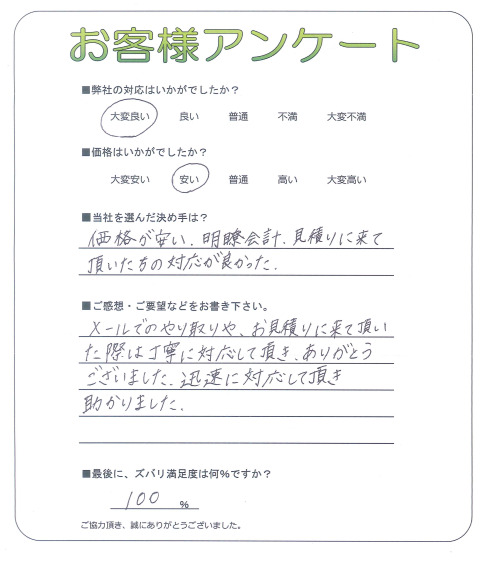 お客様アンケート
■弊社の対応はいかがでしたか？
大変良い 良い 普通 不満 大変不満
■価格はいかがでしたか？
大変安い 安い 普通 高い 大変高い
■当社を選んだ決め手は？
価格が安い、明瞭会計、見積りに来て
頂いた方の対応が良かった。
■ご感想・ご要望などをお書き下さい。
メールでのやり取りや、お見積りに来て頂い
た際は丁寧に対応して頂き、ありがとう
ございました。迅速に対応して頂き
助かりました。
■最後に、ズバリ満足度は何％ですか？
100 ％
ご協力頂き、誠にありがとうございました。